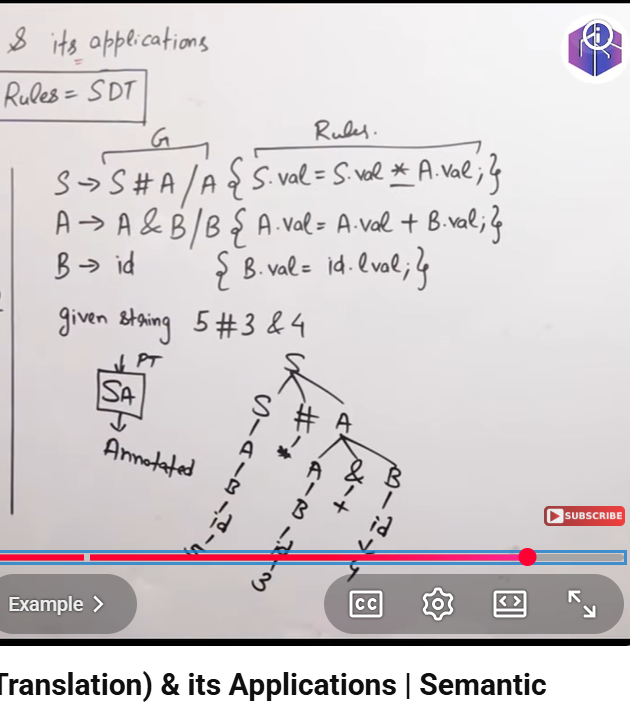 & its applications
Rules = SDT
G Rules.
S → S # A / A { S.val = S.val * A.val ; }
A → A & B / B { A.val = A.val + B.val ; }
B → id { B.val = id.lval ; }
given string 5 # 3 & 4
PT
SA
Annotated
S
S # A
A * A & B
B B + id
id id 4
5 3
SUBSCRIBE
Example >
CC
Translation) & its Applications | Semantic